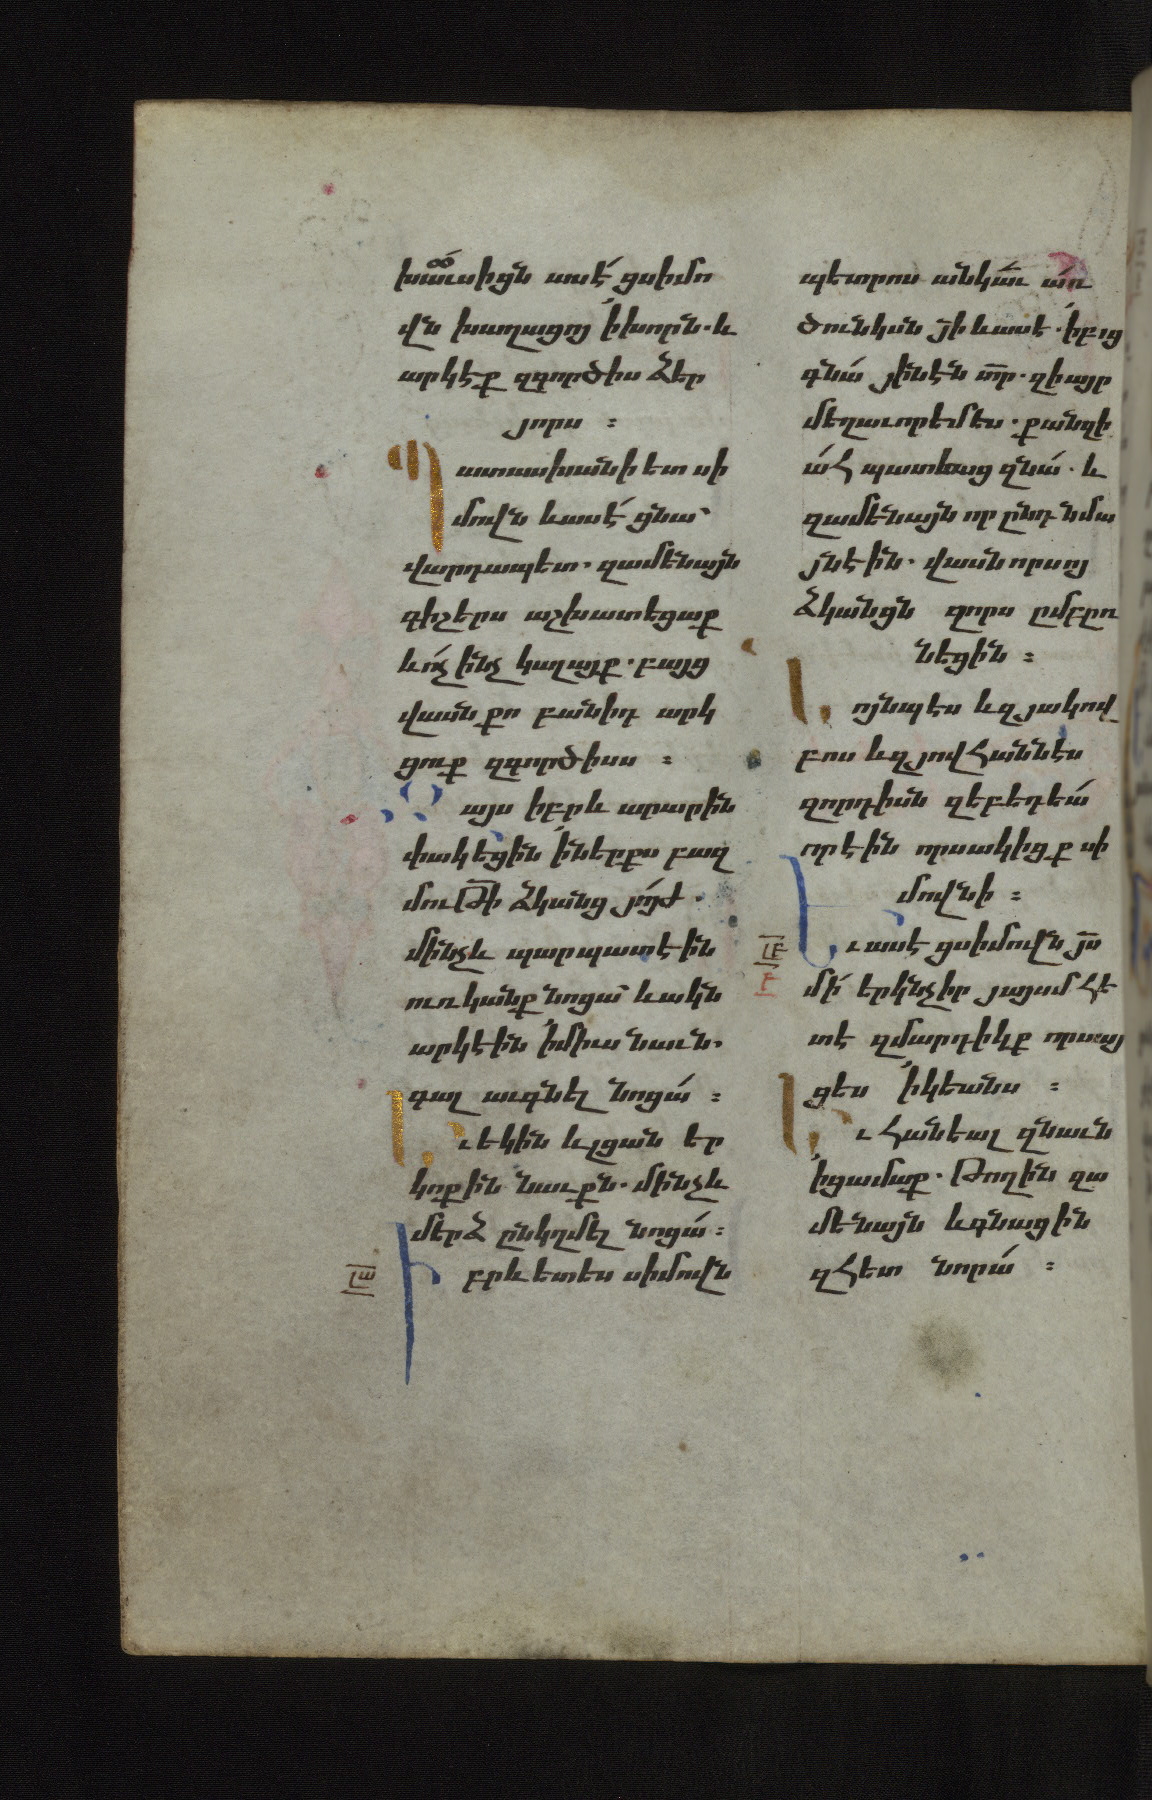 խաւսիցն ասէ ցսիմո
վն խաղացոյ ի խորն. և
արկէք զգործիս ձեր
յորս ։
Պատասխանի ետ սի
մովն և ասէ ցնա՝
վարդապետ. զամենայն
գիշերս աշխատեցաք
և ո՛չ ինչ կալաք. բայց
վասն քո բանիդ արկ
ցուք զգործիսս ։
այս իբրև արարին
փակեցին ի ներքս բազ
մութի ձկանց յո՛յժ.
մինչև պարպատէին
ուռկանք նոցա՝ և ակն
արկէին ի միւս նաւն.
գալ աւգնել նոցա ։
Եւ եկին և լցան եր
կոքին նաւքն. մինչև
մերձ ընկղմել նոցա ։
լա
Իբրև ետես սիմովն
պետրոս անկաւ առ
ծունկսն յի և ասէ. ի բաց
գնա յինէն տր. զի այր
մեղաւոր եմ ես. քանզի
ահ պատեաց զնա. և
զամենայն որ ընդ նմա
յնէին. վասն որսոյ
ձկանցն զորս ըմբըռ
նեցին ։
Նոյնպէս և զյակով
բոս և զյովհաննէս
զորդիսն զեբեդեա
որ էին որսակիցք սի
մովնի ։
լբ
բ
Եւ ասէ ցսիմովն յս
մի՛ երկնչիր յայսմ հե
տէ զմարդիկք որսայ
ցես ի կեանս ։
Եւ հանեալ զնաւն
ի ցամաք. թողին զա
մենայն և գնացին
զհետ նորա ։